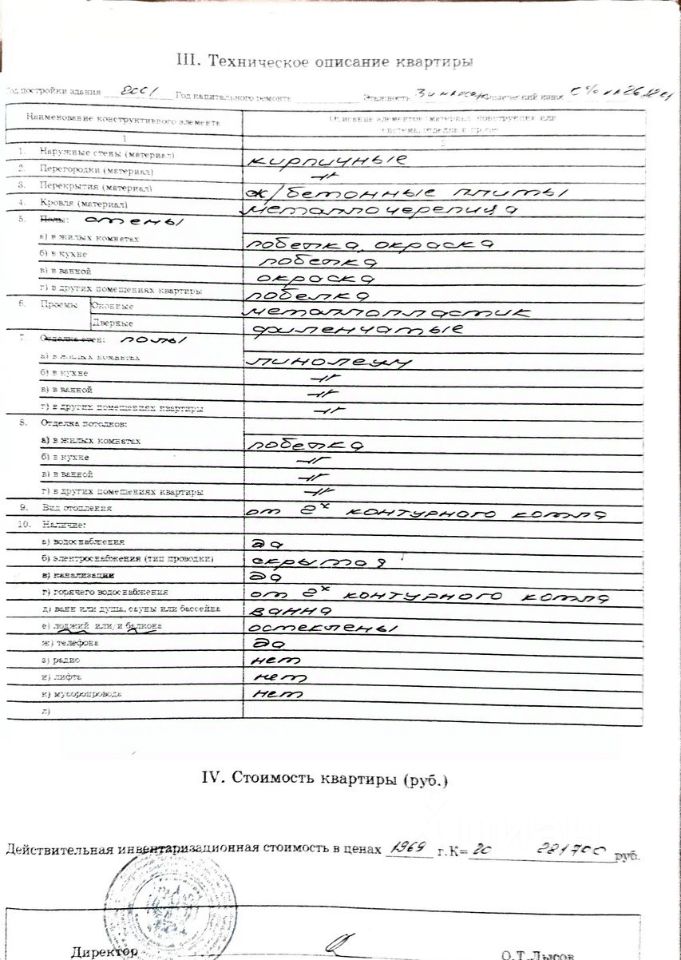 III. Техническое описание квартиры
Год постройки здания 2001 Год капитального ремонта Этажность 3
Наименование конструктивного элемента
Описание элементов (материал, конструкция или система, отделка и прочее)
1 2
1. Наружные стены (материал) кирпичные
2. Перегородки (материал) -//-
3. Перекрытия (материал) ж/бетонные плиты
4. Кровля (материал) металлочерепица
5. Полы: стены
а) в жилых комнатах побелка, окраска
б) в кухне побелка
в) в ванной окраска
г) в других помещениях квартиры побелка
6. Проемы Оконные металлопластик
Дверные филенчатые
7. Отделка стен: полы
а) в жилых комнатах линолеум
б) в кухне -//-
в) в ванной -//-
г) в других помещениях квартиры -//-
8. Отделка потолков:
а) в жилых комнатах побелка
б) в кухне -//-
в) в ванной -//-
г) в других помещениях квартиры -//-
9. Вид отопления от 2х контурного котла
10. Наличие:
а) водоснабжения да
б) электроснабжения (тип проводки) скрытая
в) канализации да
г) горячего водоснабжения от 2х контурного котла
д) ванн или душа, сауны или бассейна ванна
е) лоджий или/и балкона остеклены
ж) телефона да
з) радио нет
и) лифта нет
к) мусоропровода нет
л)
IV. Стоимость квартиры (руб.)
Действительная инвентаризационная стоимость в ценах 1969 г. К= 20 281700 руб.
Директор О.Т.Лысов